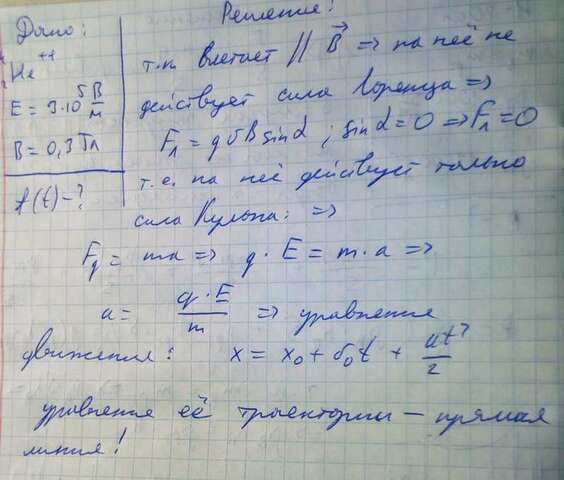 Дано:
He⁺⁺
E = 3·10⁵ В/м
B = 0,3 Тл
f(t) - ?
Решение:
т.к. влетает // B⃗ => на неё не
действует сила Лоренца =>
Fл = qυB sinα ; sinα = 0 => Fл = 0
т.е. на неё действует только
сила Кулона: =>
Fq = ma => q · E = m · a =>
a = q·E/m => уравнение
движения: x = x₀ + υ₀t + at²/2
уравнение её траектории — прямая
линия!